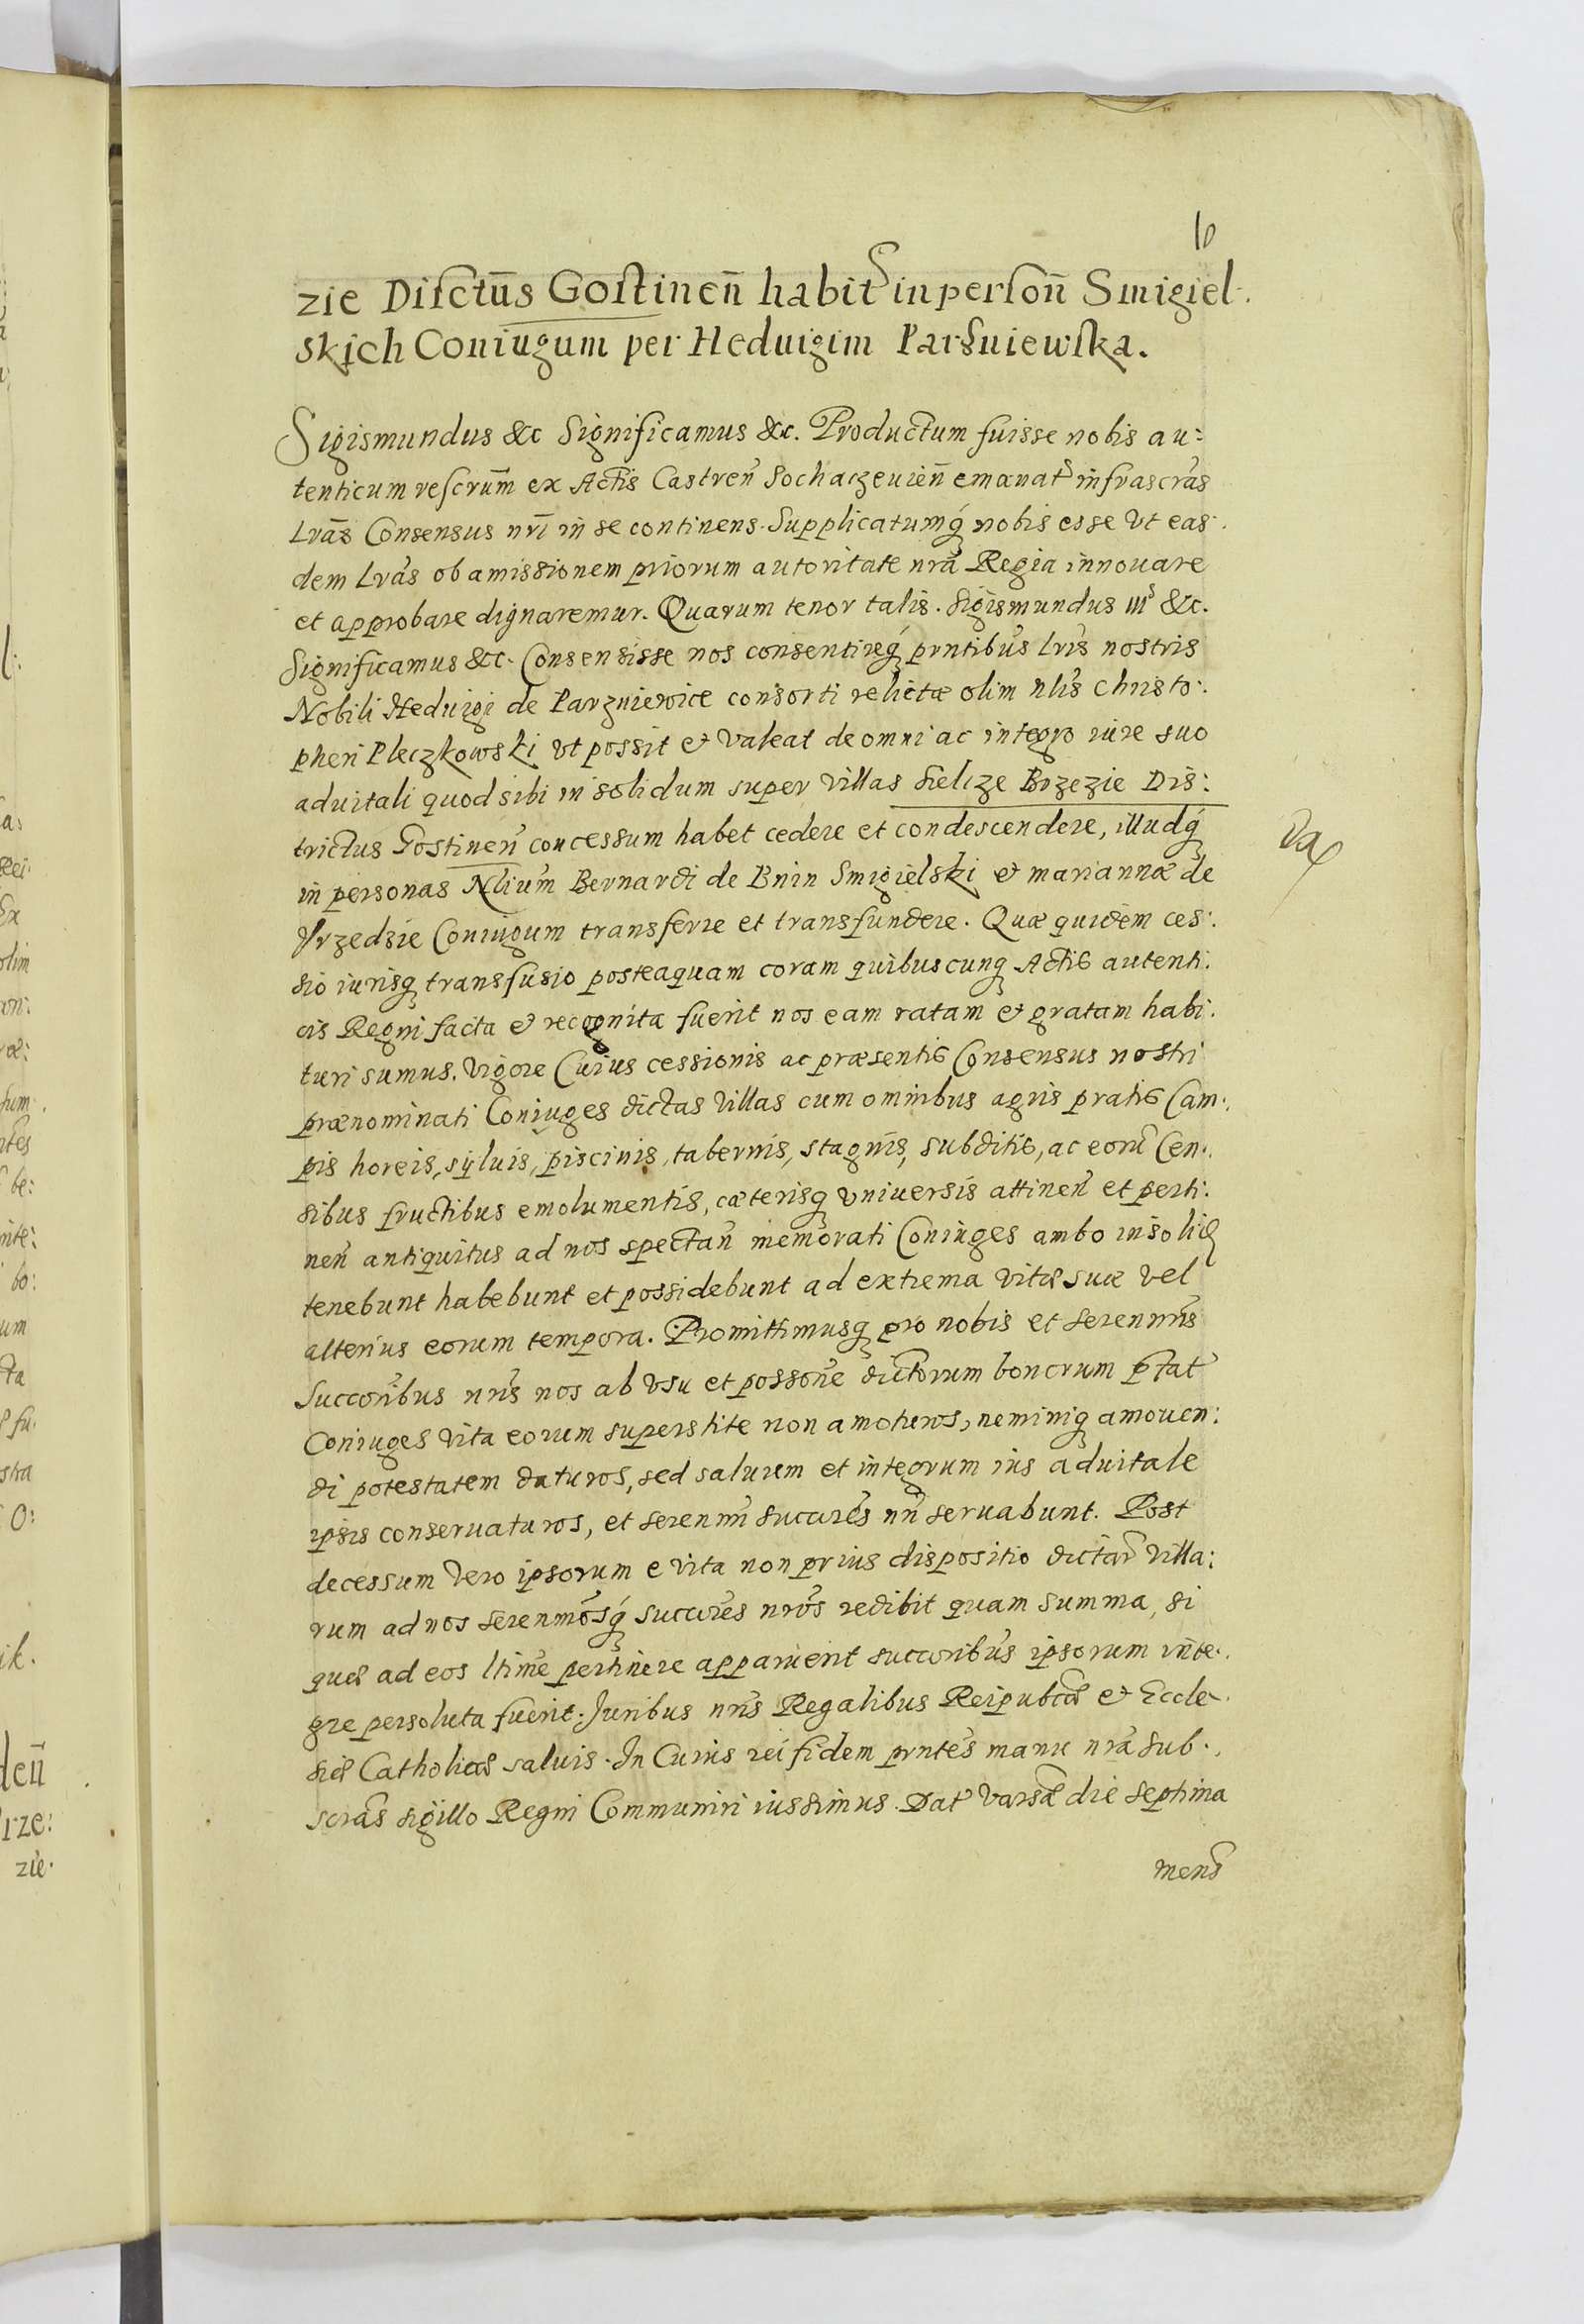 10
zie Disctūs Gostinen̄ habit in person̄ Smigiel.
skich Coniugum per Heduigim Parzniewska.
Sigismundus &c Significamus &c. Productum fuisse nobis au:
tenticum rescrum̄ ex Actis Castren̄ Sochaczeuien̄ emanat infrascras̄
Lrās Consensus nrī in se continens. Supplicatumq́ nobis esse vt eas.
dem Lrās ob amissionem priorum autoritate nrā Regia innouare
et approbare dignaremur. Quarum tenor talis. Sigismundus III &c.
Significamus &c. Consensisse nos consentireq́ prntibus Lrīs nostris
Nobili Heduigi de Parzniewice consorti relictæ olim Nlis Christo:
pheri Pleczkowski vt possit & valeat de omni ac integro iure suo
aduitali quod sibi in solidum super villas Sielize Brzezie Dis:
trictus Gostinen̄ concessum habet cedere et condescendere, illudq́
in personas Nlium̄ Bernardi de Bnin Smigielski & mariannæ de
Vrzedzie Coniugum transferre et transfundere. Quæ quidem ces:
sio iurisq transfusio posteaquam coram quibuscunq Actis autenti:
cis Regni facta & recognita fuerit nos eam ratam & gratam habi:
turi sumus. Vigore Cuius cessionis ac præsentis Consensus nostri
prænominati Coniuges dictas villas cum omnibus agris pratis Cam:
pis horeis, syluis, piscinis, tabernis, stagnis, subditis, ac eorū Cen:
sibus fructibus emolumentis, cæterisq vniuersis attinen̄ et perti:
nen̄ antiquitus ad nos spectan̄ memorati Coniuges ambo in solid
tenebunt habebunt et possidebunt ad extrema vitæ suæ vel
alterius eorum tempora. Promittimusq pro nobis et serenmīs
Succoribus nrīs nos ab vsu et possone dictorum bonorum ptat
Coniuges vita eorum superstite non amoturos, neminiq amouen:
di potestatem daturos, sed saluum et integrum ius aduitale
ipsis conseruaturos, et serenmī succres nrī seruabunt. Post
decessum vero ipsorum e vita non prius dispositio dictar villa:
rum ad nos serenmosq́ succres nros redibit quam summa, si
quæ ad eos ltime pertinere apparuerit succoribus ipsorum inte:
gre persoluta fuerit. Juribus nrīs Regalibus Reipubcæ & Eccle:
siæ Catholicæ saluis. In Cuius rei fidem prntes manu nrā sub:
scras sigillo Regni Communiri iussimus. Dat Varsæ die septima
mens